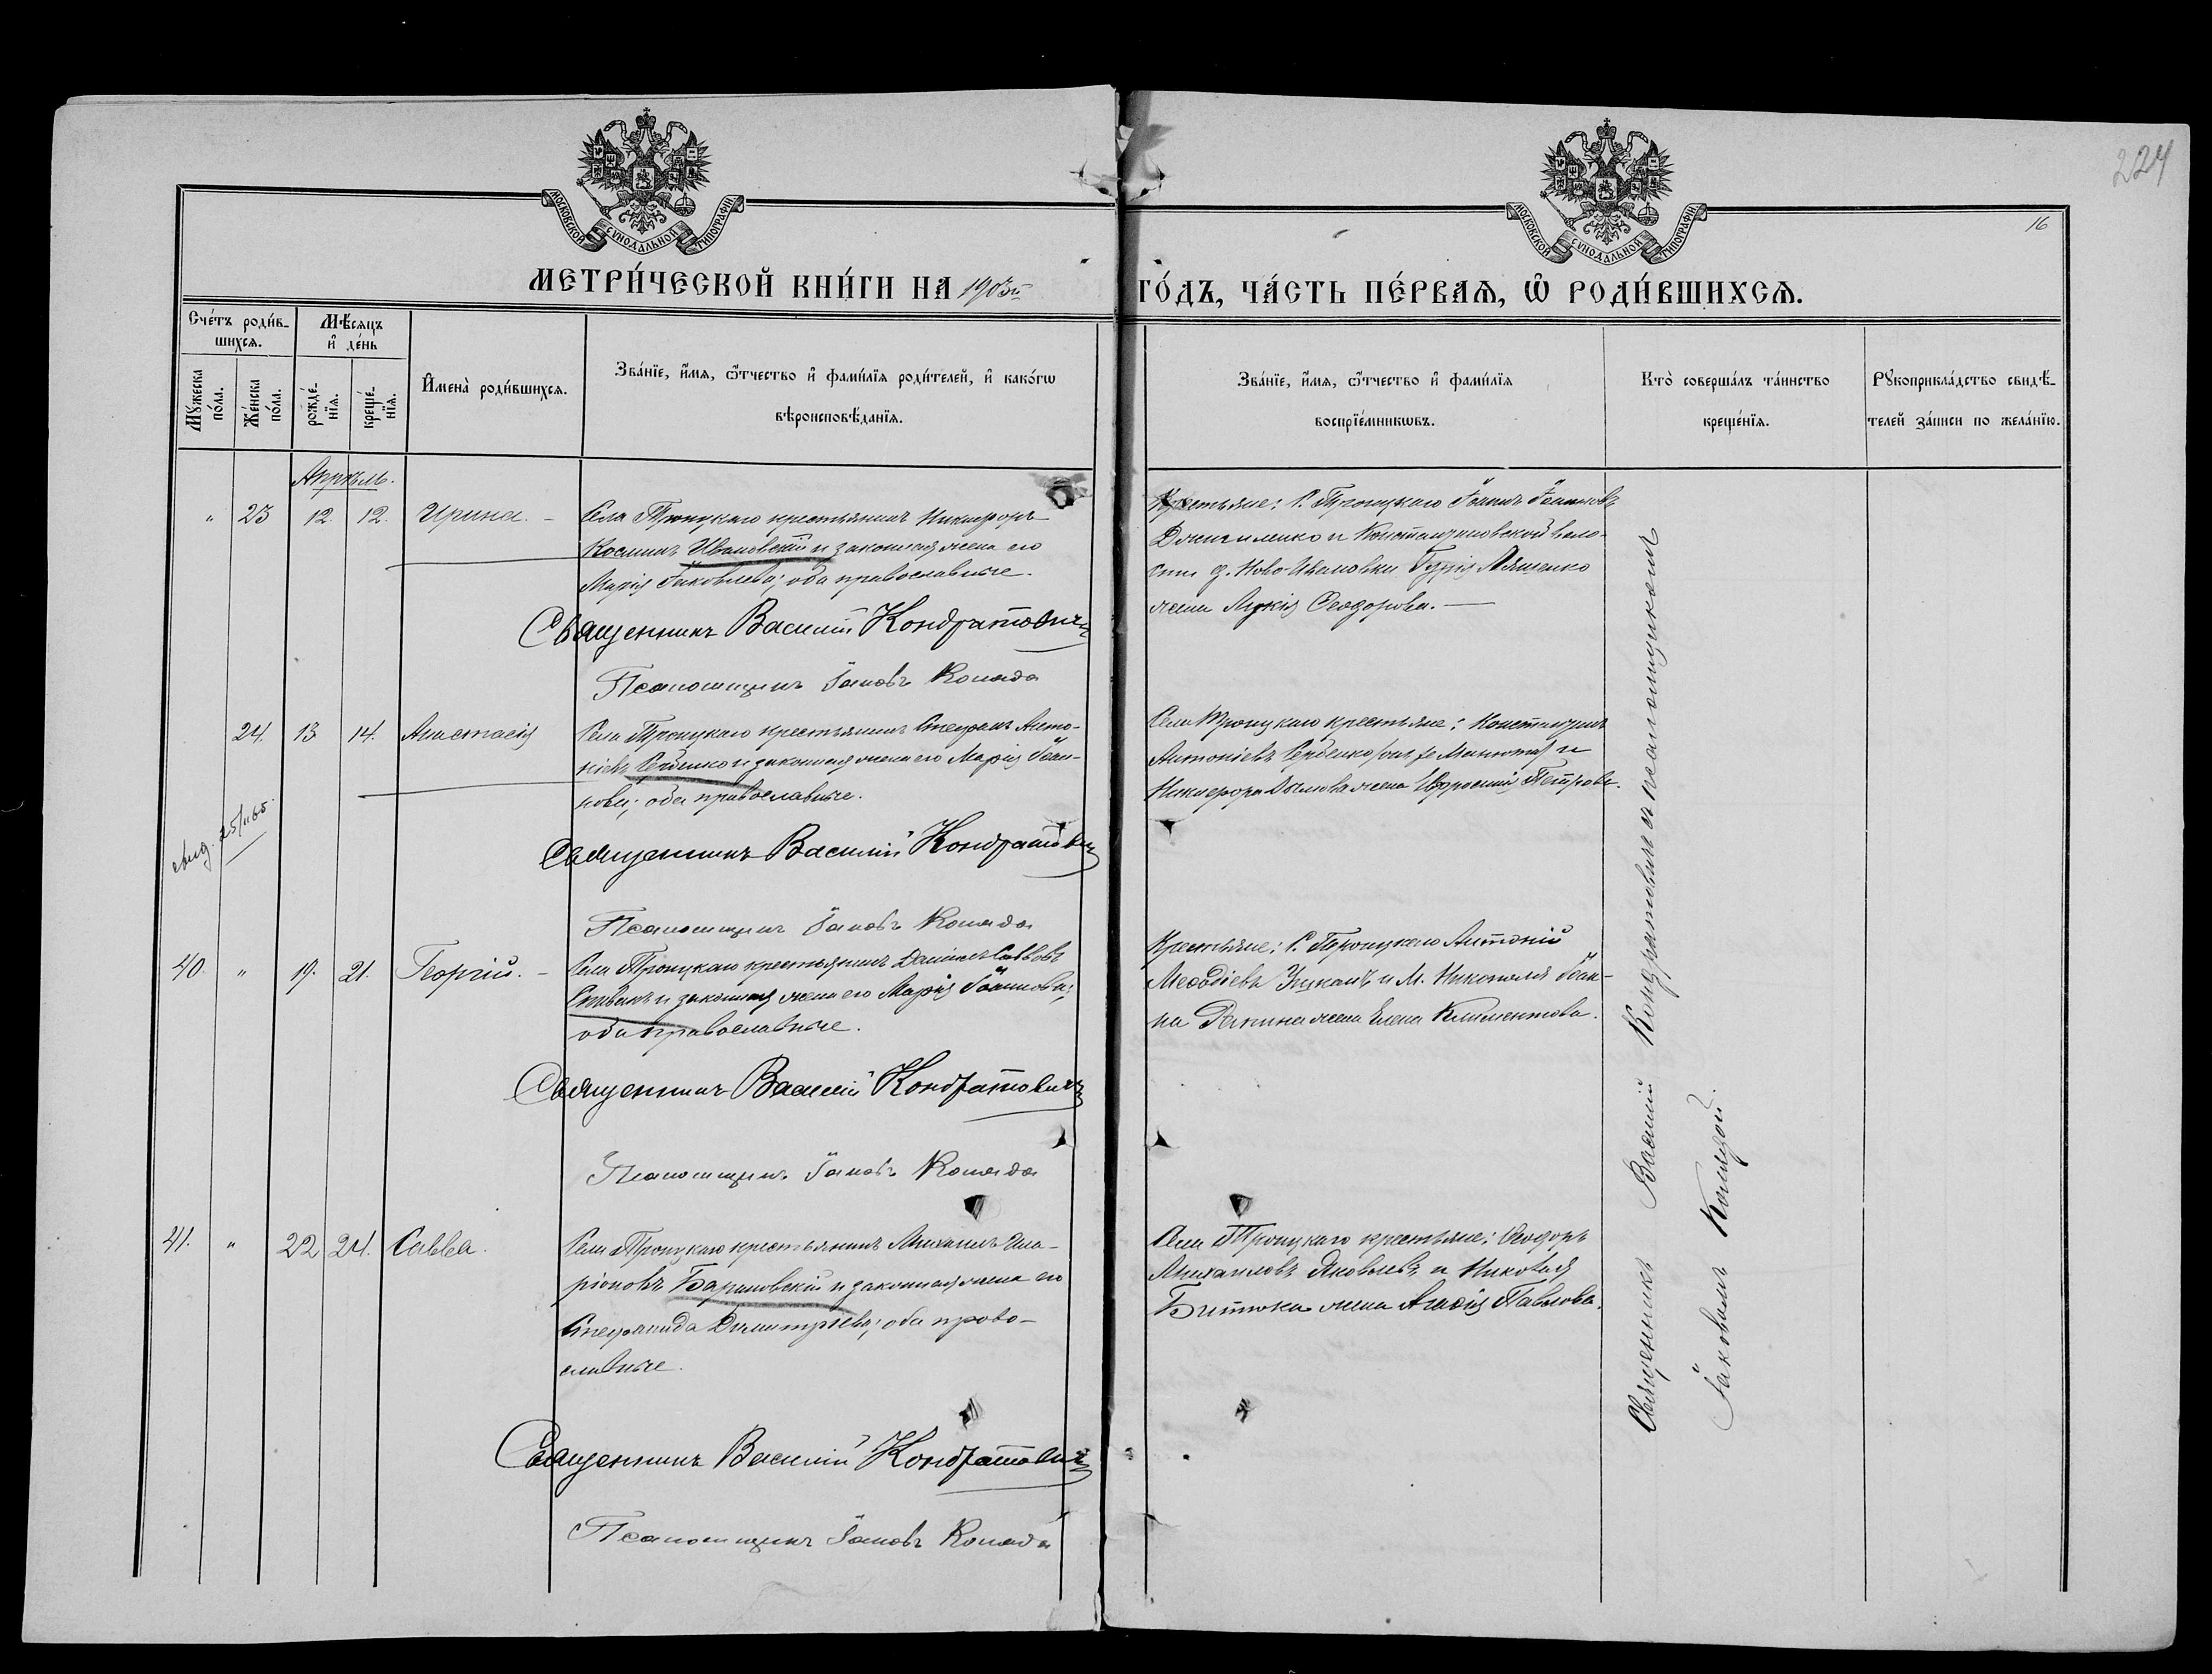 224
16
МОСКОВСКОЙ СѴНОДАЛЬНОЙ ТИПОГРАФІИ
МОСКОВСКОЙ СѴНОДАЛЬНОЙ ТИПОГРАФІИ
МЕТРИ́ЧЕСКОЙ КНИ́ГИ НА 1903й ГО́ДЪ, ЧА́СТЬ ПЕ́РВАѦ, Ѽ РОДИ́ВШИХСѦ.
Сче́тъ роди́в-
шихсѧ.
Мѣ́сѧцъ
и҆ де́нь
Мꙋ́жеска
по́ла.
Же́нска
по́ла.
рожде́-
нїѧ.
креще́-
нїѧ.
И҆мена̀ роди́вшихсѧ.
Зва́нїе, и҆́мѧ, ѻ҆́тчество и҆ фами́лїѧ роди́телей, и҆ како́гѡ
вѣроисповѣ́данїѧ.
Зва́нїе, и҆́мѧ, ѻ҆́тчество и҆ фами́лїѧ
воспрїе́мникѡвъ.
Кто̀ соверша́лъ та́инство
креще́нїѧ.
Рꙋкоприкла́дство свидѣ́-
телей за́писи по жела́нїю.
Апрѣль.
" 23 12. 12. Ирина. –
Села Троицкаго крестьянинъ Никифоръ
Косминъ Ивановскій и законная жена его
Марія Іаковлева; оба православные.
Священникъ Василій Кондратовичъ
Псаломщикъ Іаковъ Комада
Крестьяне: С. Троицкаго Іоаннъ Іоанновъ
и Константиновской воло-
сти д. Ново-Ивановки
жена Лукія Ѳеодорова. —
24. 13 14. Анастасія
Села Троицкаго крестьянинъ Стефанъ Анто-
ніевъ и законная жена его Марія Іоан-
нова; оба православные.
Священникъ Василій Кондратовичъ
Псаломщикъ Іаковъ Комада
Села Троицкаго крестьяне: Константинъ
Антоніевъ и
Никифора жена Евфросинія Петрова.
40. " 19. 21. Георгій. –
Села Троицкаго крестьянинъ Даніилъ Савовъ
и законная жена его Марія Іоаннова;
оба православные.
Священникъ Василій Кондратовичъ
Псаломщикъ Іаковъ Комада
Крестьяне: С. Троицкаго Антоній
Меѳодіевъ и М. Никополя Іоан-
на жена Елена Климентова.
41. " 22 24. Савва.
Села Троицкаго крестьянинъ Михаилъ Ила-
ріоновъ Барановскій и законная жена его
Стефанида Димитріева; оба право-
славные.
Священникъ Василій Кондратовичъ
Псаломщикъ Іаковъ Комада
Села Троицкаго крестьяне: Ѳеодоръ
Михаиловъ Яковлевъ и Николая
жена Агаѳія Павлова.
Священникъ Василій Кондратовичъ съ псаломщикомъ
Іаковомъ Комадой.